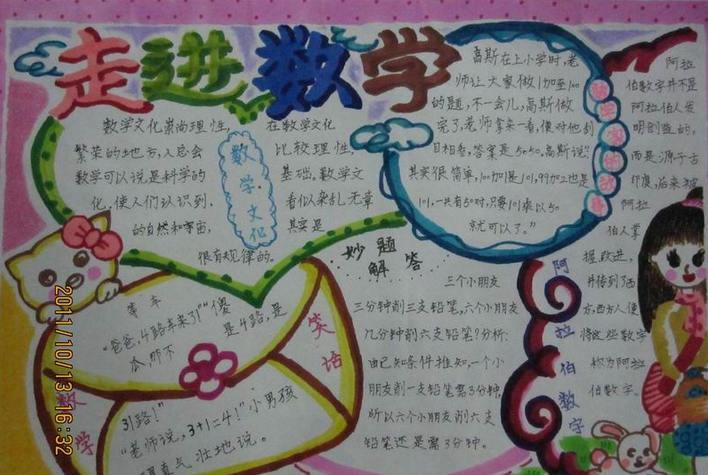 走进数学
数学文化崇尚理性，
繁荣的地方，人总会
数学可以说是科学的
化，使人们认识到，
的自然和宇宙，
很有规律的。
数学·文化
在数学文化
比较理性，
基础。数学文
看似杂乱无章
其实是
高斯在上小学时，老
师让大家做1加至100
的题，不一会儿，高斯做
完了，老师拿来一看，便对他刮
目相看，答案是5050。高斯说："
其实很简单，100加1是101，99加2也是
101，一共有50对，只要101乘以50
就可以了。"
阿拉
伯数字并不是
阿拉伯人发
明创造的，
而是源于古
印度，后来被
阿拉
伯人掌
握、改进，
并传到了西
方，西方人便
将这些数字
称为阿拉
伯数字。
阿拉伯数字
妙题
解答
三个小朋友
三分钟削三支铅笔，六个小朋友
几分钟削六支铅笔？分析：
由已知条件推知，一个小
朋友削一支铅笔需3分钟，
所以六个小朋友削六支
铅笔还是需3分钟。
等车
"爸爸，4路车来了！""傻
瓜，那不
是4路，是
31路！"
"老师说，3+1=4！"小男孩
气壮地说。
数学
笑话
2011/10/13 16:32